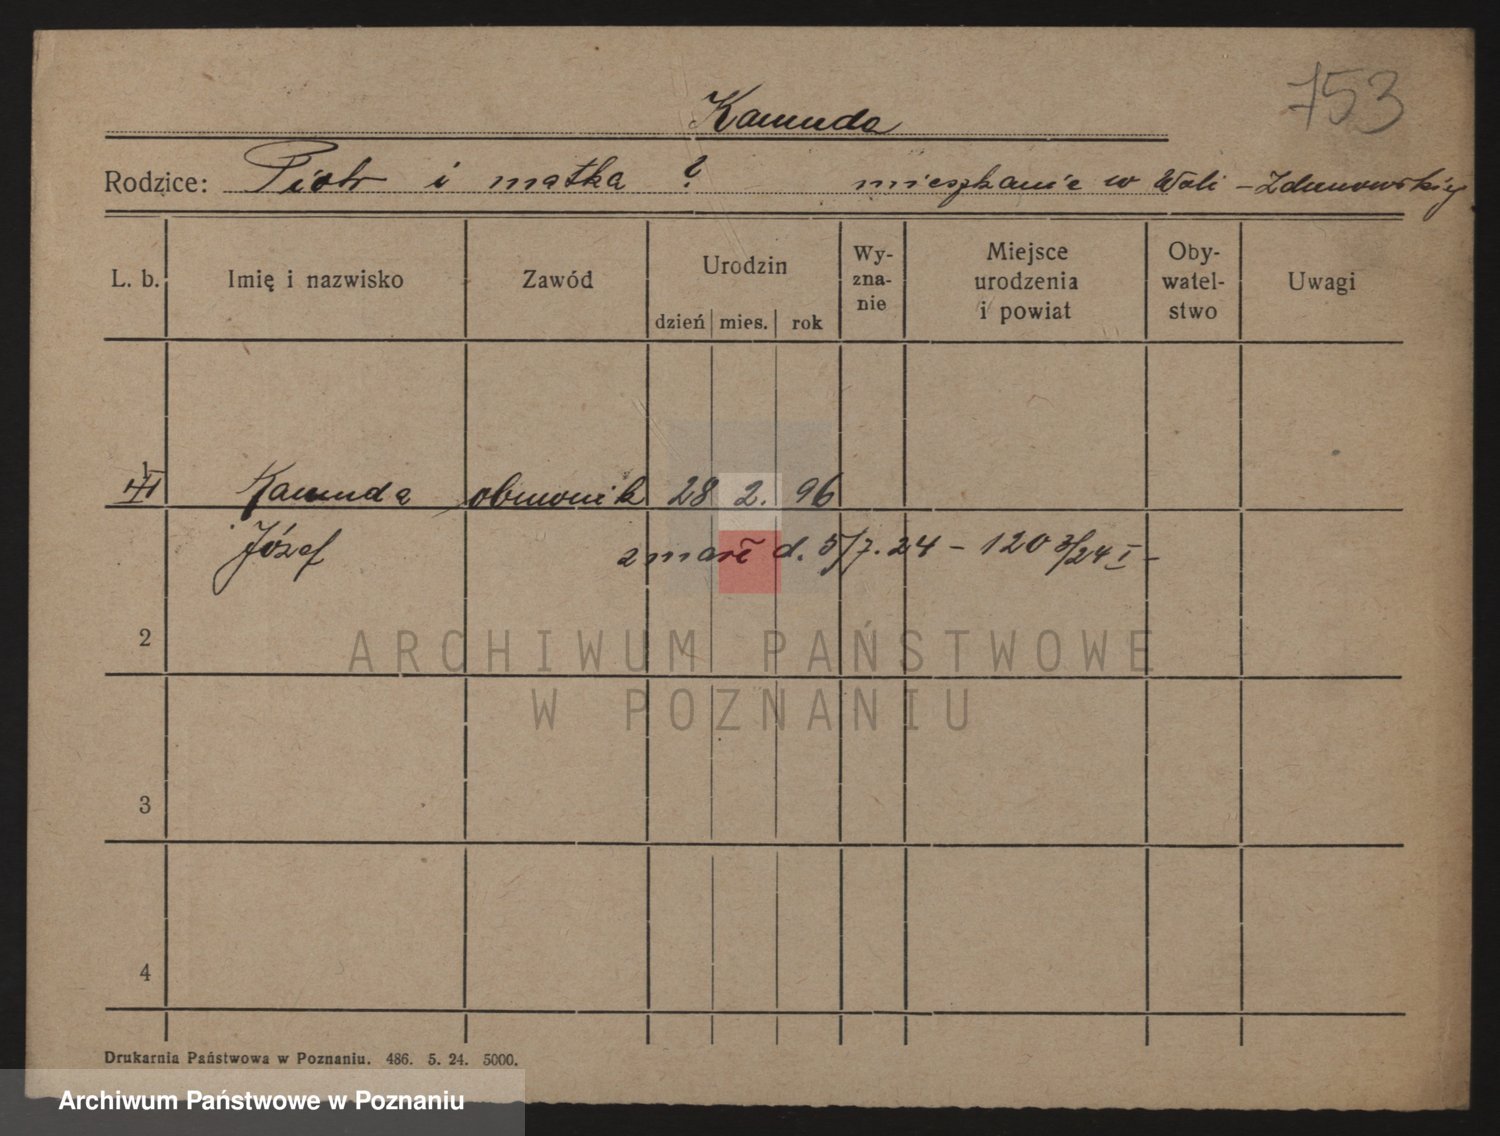 753
Kamuda
Rodzice: Piotr i matka ? mieszkanie w Woli - Zdunowskiej
L. b. Imię i nazwisko Zawód Urodzin dzień mies. rok Wy-zna-nie Miejsce urodzenia i powiat Oby-watel-stwo Uwagi
1 Kamuda 28 2. 96
Józef zmarł d. 5/7. 24 - 120 3/24 I -
2
ARCHIWUM PAŃSTWOWE
W POZNANIU
3
4
Drukarnia Państwowa w Poznaniu. 486. 5. 24. 5000.
Archiwum Państwowe w Poznaniu